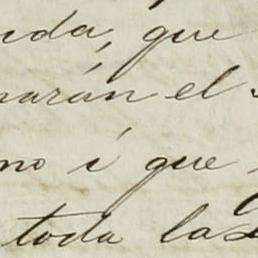 nda, que
narán el
no i que
toda las